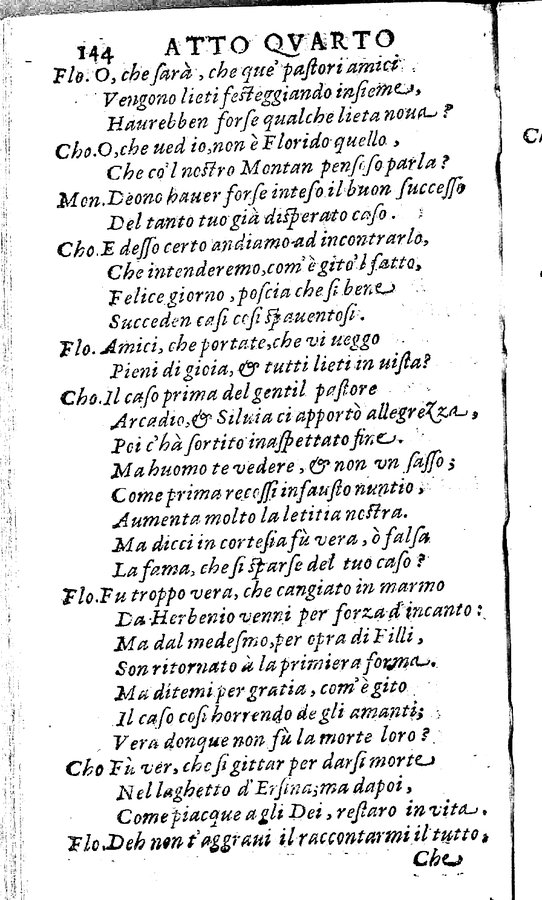 144 ATTO QVARTO
Flo. O, che sarà, che que' pastori amici
Vengono lieti festeggiando insieme,
Haurebben forse qualche lieta noua?
Cho. O, che ued io, non è Florido quello,
Che co'l nostro Montan pensoso parla?
Mon. Deono hauer forse inteso il buon successo
Del tanto tuo già disperato caso.
Cho. E desso certo andiamo ad incontrarlo,
Che intenderemo, com'è gito'l fatto,
Felice giorno, poscia che si bene
Succeden casi cosi spauentosi.
Flo. Amici, che portate, che vi ueggo
Pieni di gioia, & tutti lieti in uista?
Cho. Il caso prima del gentil pastore
Arcadio, & Siluia ci apportò allegrezza,
Poi c'hà sortito inaspettato fine.
Ma huomo te vedere, & non vn sasso;
Come prima recossi infausto nuntio,
Aumenta molto la letitia nostra.
Ma dicci in cortesia fù vera, ò falsa
La fama, che si sparse del tuo caso?
Flo. Fu troppo vera, che cangiato in marmo
Da Herbenio venni per forza d'incanto:
Ma dal medesmo, per opra di Filli,
Son ritornato à la primiera forma.
Ma ditemi per gratia, com'è gito
Il caso cosi horrendo de gli amanti;
Vera donque non fù la morte loro?
Cho Fù ver, che si gittar per darsi morte
Nel laghetto d'Ersina; ma dapoi,
Come piacque a gli Dei, restaro in vita.
Flo. Deh non t'aggraui il raccontarmi il tutto,
Che
C